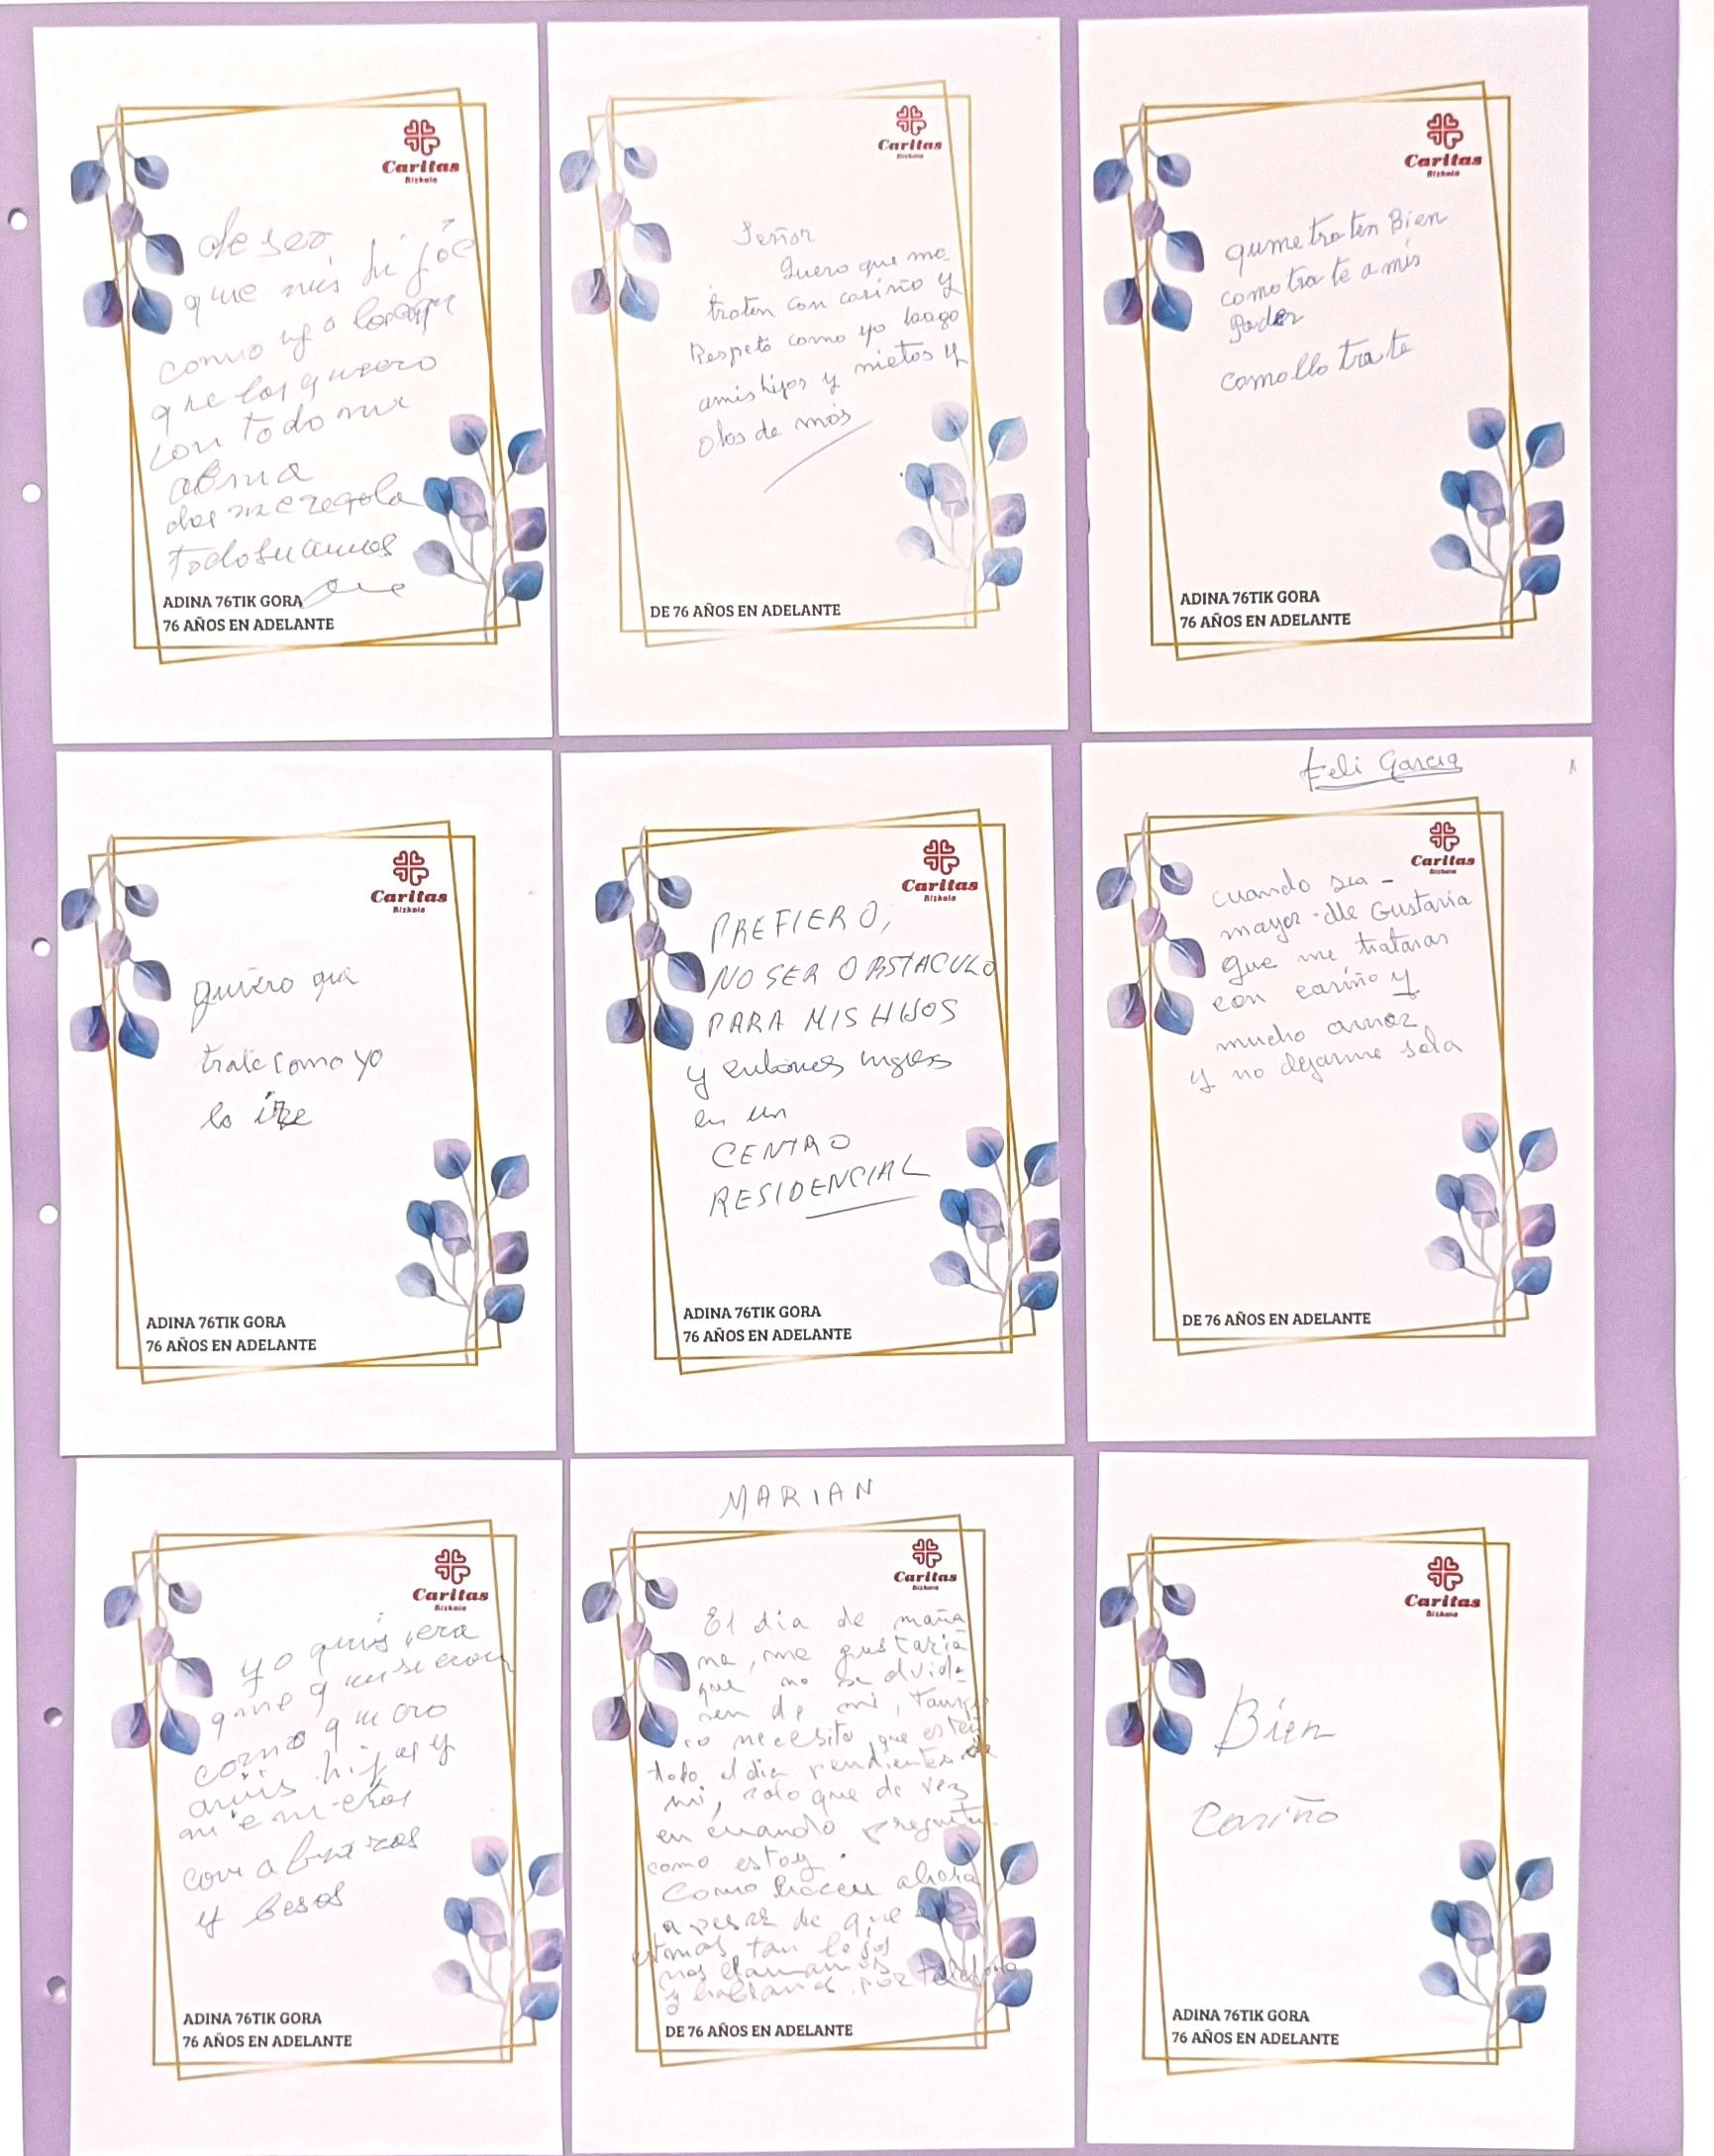 Caritas
Bizkaia
deseo
que mis hijos
como yo a los que
que los quiero
con todo mi
alma
dar me regola
todo su amor
ADINA 76TIK GORA
76 AÑOS EN ADELANTE
Caritas
Bizkaia
Señor
Quero que me
traten con cariño y
Respeto como yo hago
amis hijos y nietos y
olos de más
DE 76 AÑOS EN ADELANTE
Caritas
Bizkaia
qume traten Bien
como trate a mis
Pader
como llo trate
ADINA 76TIK GORA
76 AÑOS EN ADELANTE
Caritas
Bizkaia
quiero que
trate como yo
lo ize
ADINA 76TIK GORA
76 AÑOS EN ADELANTE
Caritas
Bizkaia
PREFIERO,
NO SER OBSTACULO
PARA MIS HIJOS
y entonces ingreso
en un
CENTRO
RESIDENCIAL
ADINA 76TIK GORA
76 AÑOS EN ADELANTE
Feli Garcia
Caritas
Bizkaia
cuando sea -
mayor Me Gustaria
que me trataran
con cariño y
mucho amor
y no dejarme sola
DE 76 AÑOS EN ADELANTE
Caritas
Bizkaia
yo quisiera
que quisieran
como quiero
amis hijas y
con abrazos
y besos
ADINA 76TIK GORA
76 AÑOS EN ADELANTE
MARIAN
Caritas
Bizkaia
El dia de maña
na, me gustaria
que no se olvida
ran de mi, tampo
co necesito que esten
todo el dia pendientes de
mi, solo que de vez
en cuando pregunten
como estoy.
Como hacen ahora
a pesar de que
estmos tan lejos
nos llamamos
y hablamos por telefono
DE 76 AÑOS EN ADELANTE
Caritas
Bizkaia
Bien
Cariño
ADINA 76TIK GORA
76 AÑOS EN ADELANTE